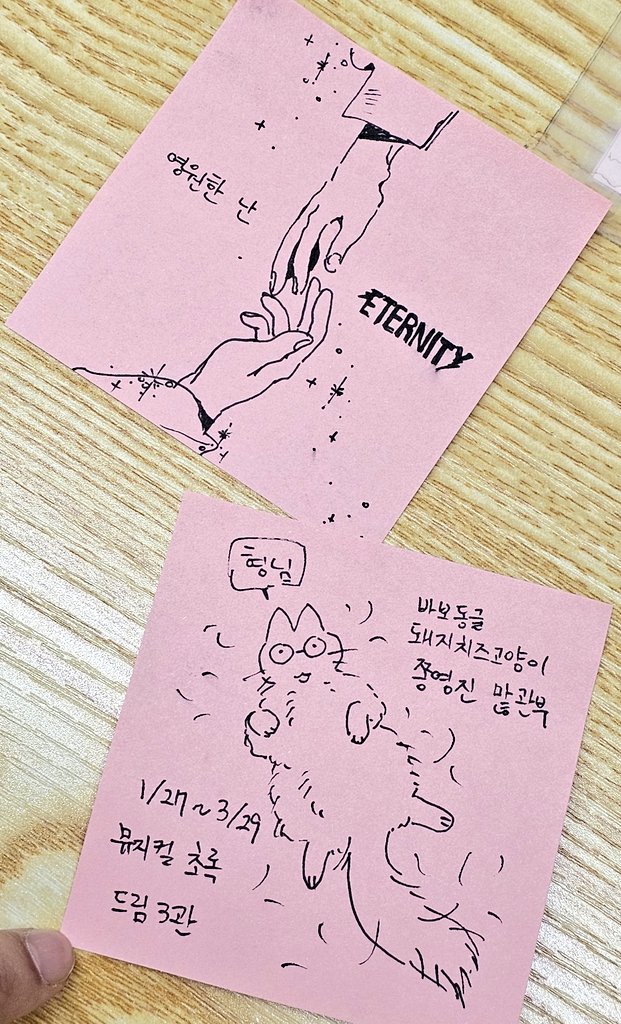 영원한 난
ETERNITY
형님
바보동글
돼지치즈고양이
쫑영진 많관부
1/27~3/29
뮤지컬 초록
드림 3관